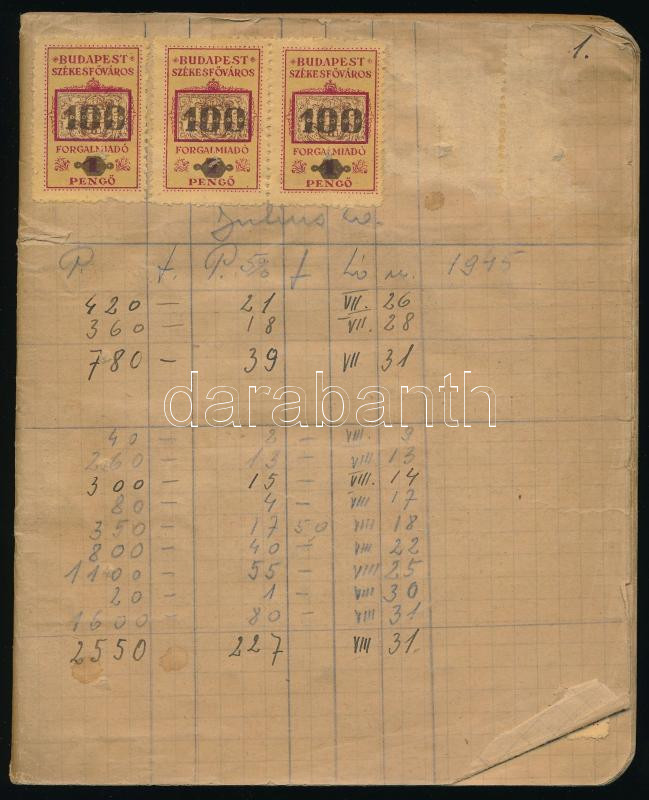 1.
BUDAPEST BUDAPEST BUDAPEST
SZÉKESFŐVÁROS SZÉKESFŐVÁROS SZÉKESFŐVÁROS
100 100 100
FORGALMIADÓ FORGALMIADÓ FORGALMIADÓ
1 1 1
PENGŐ PENGŐ PENGŐ
Julius
P. f. P. 5% f 1945
420 — 21 VII. 26
360 — 18 VII. 28
780 — 39 VII 31
darabanth
40 — 8 — VIII. 9
260 — 13 — VIII 13
300 — 15 — VIII. 14
80 — 4 — VIII 17
350 — 17 50 VIII 18
800 — 40 — VIII 22
1100 — 55 — VIII 25
20 — 1 — VIII 30
1600 — 80 — VIII 31
2550 227 VIII 31.